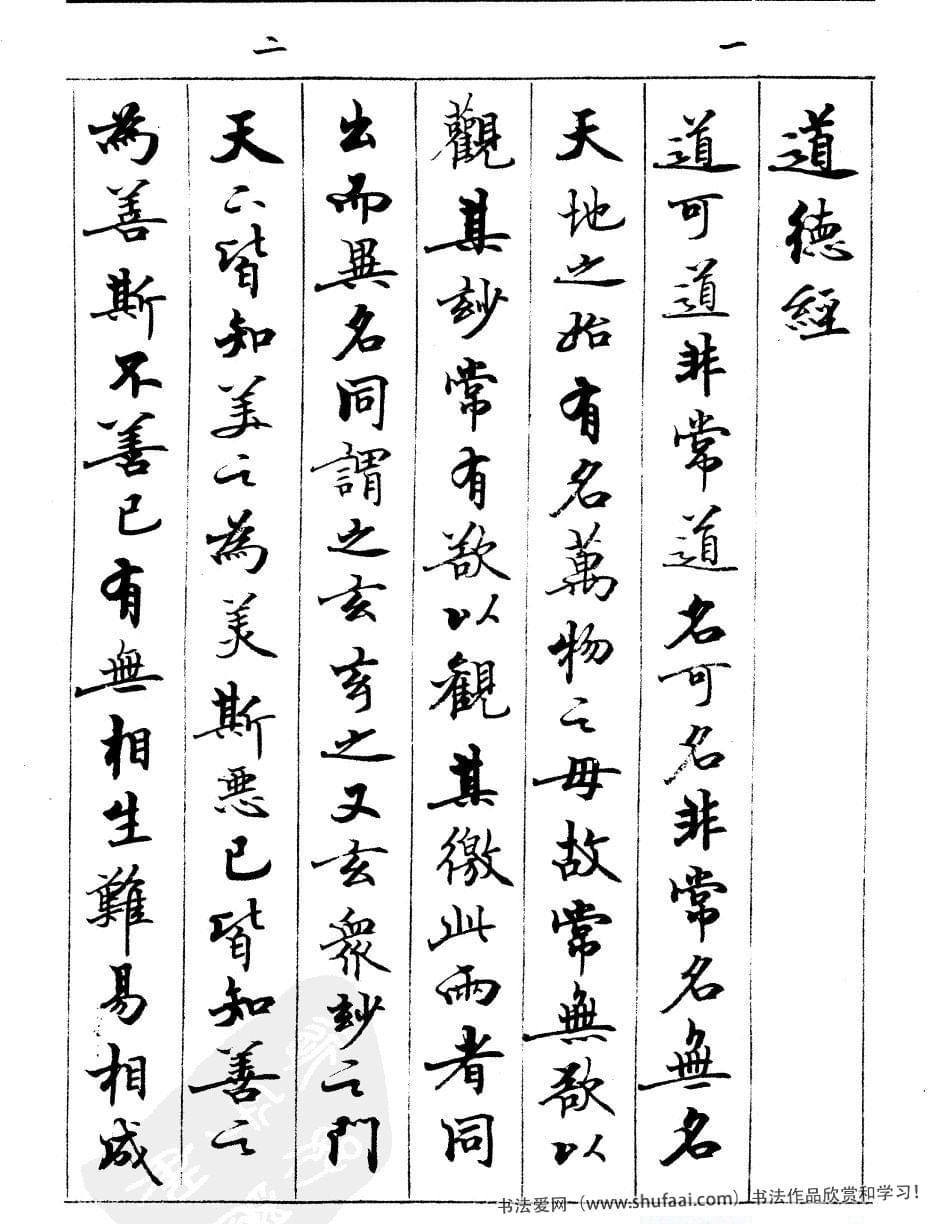 一
道德經
道可道非常道名可名非常名無名
天地之始有名萬物之母故常無欲以
觀其玅常有欲以觀其徼此兩者同
二
出而異名同謂之玄玄之又玄衆玅之門
天下皆知美之為美斯惡已皆知善之
為善斯不善已有無相生難易相成
书法爱网 (www.shufaai.com) 书法作品欣赏和学习！